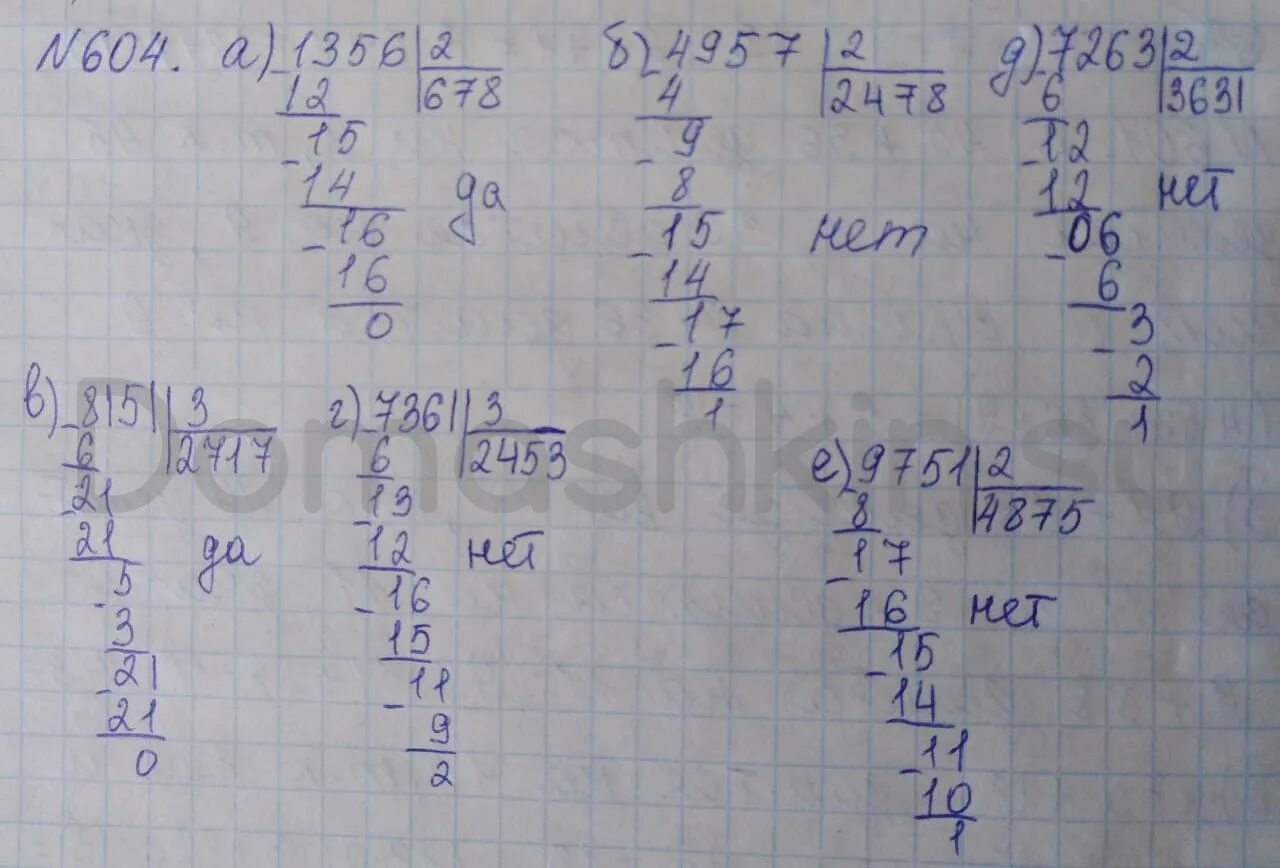 N604. а) 1356 | 2
678
12
15
14 да
16
16
0
б) 4957 | 2
2478
4
9
8
15 нет
14
17
16
1
д) 7263 | 2
3631
6
12
12 нет
06
6
3
2
1
в) 8151 | 3
2717
6
21
21 да
5
3
21
21
0
г) 7361 | 3
2453
6
13
12 нет
16
15
11
9
2
е) 9751 | 2
4875
8
17
16 нет
15
14
11
10
1
Domashkin.su